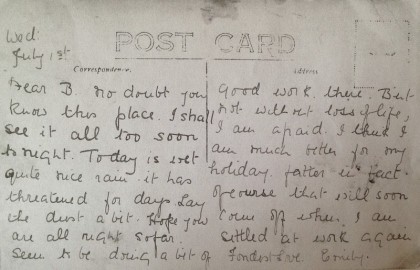 Wed:
July 1st
POST CARD
Correspondence.
Address
Dear B. No doubt you
know this place. I shall
see it all too soon
to night. Today is wet
quite nice rain it has
threatened for days. Lay
the dust a bit. Hope you
are all right so far.
Seem to be doing a bit of
Good work there. But
not without loss of life,
I am afraid. I think I
am much better for my
holiday. fatter in fact.
Of course that will soon
come off when I am
settled at work again
Fondest love. Emily.